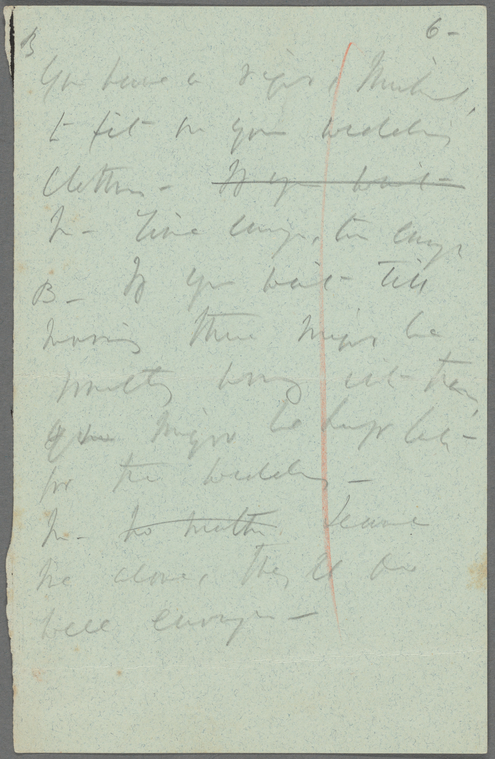 6-
B
You have a right, Michael,
to fit on your wedding
clothes - If you wait
M - Time enough, time enough
B - If you wait till
morning there might be
something wrong with them,
you might be kept late
for the wedding -
M - No matter Leave
me alone, they'll do
well enough -